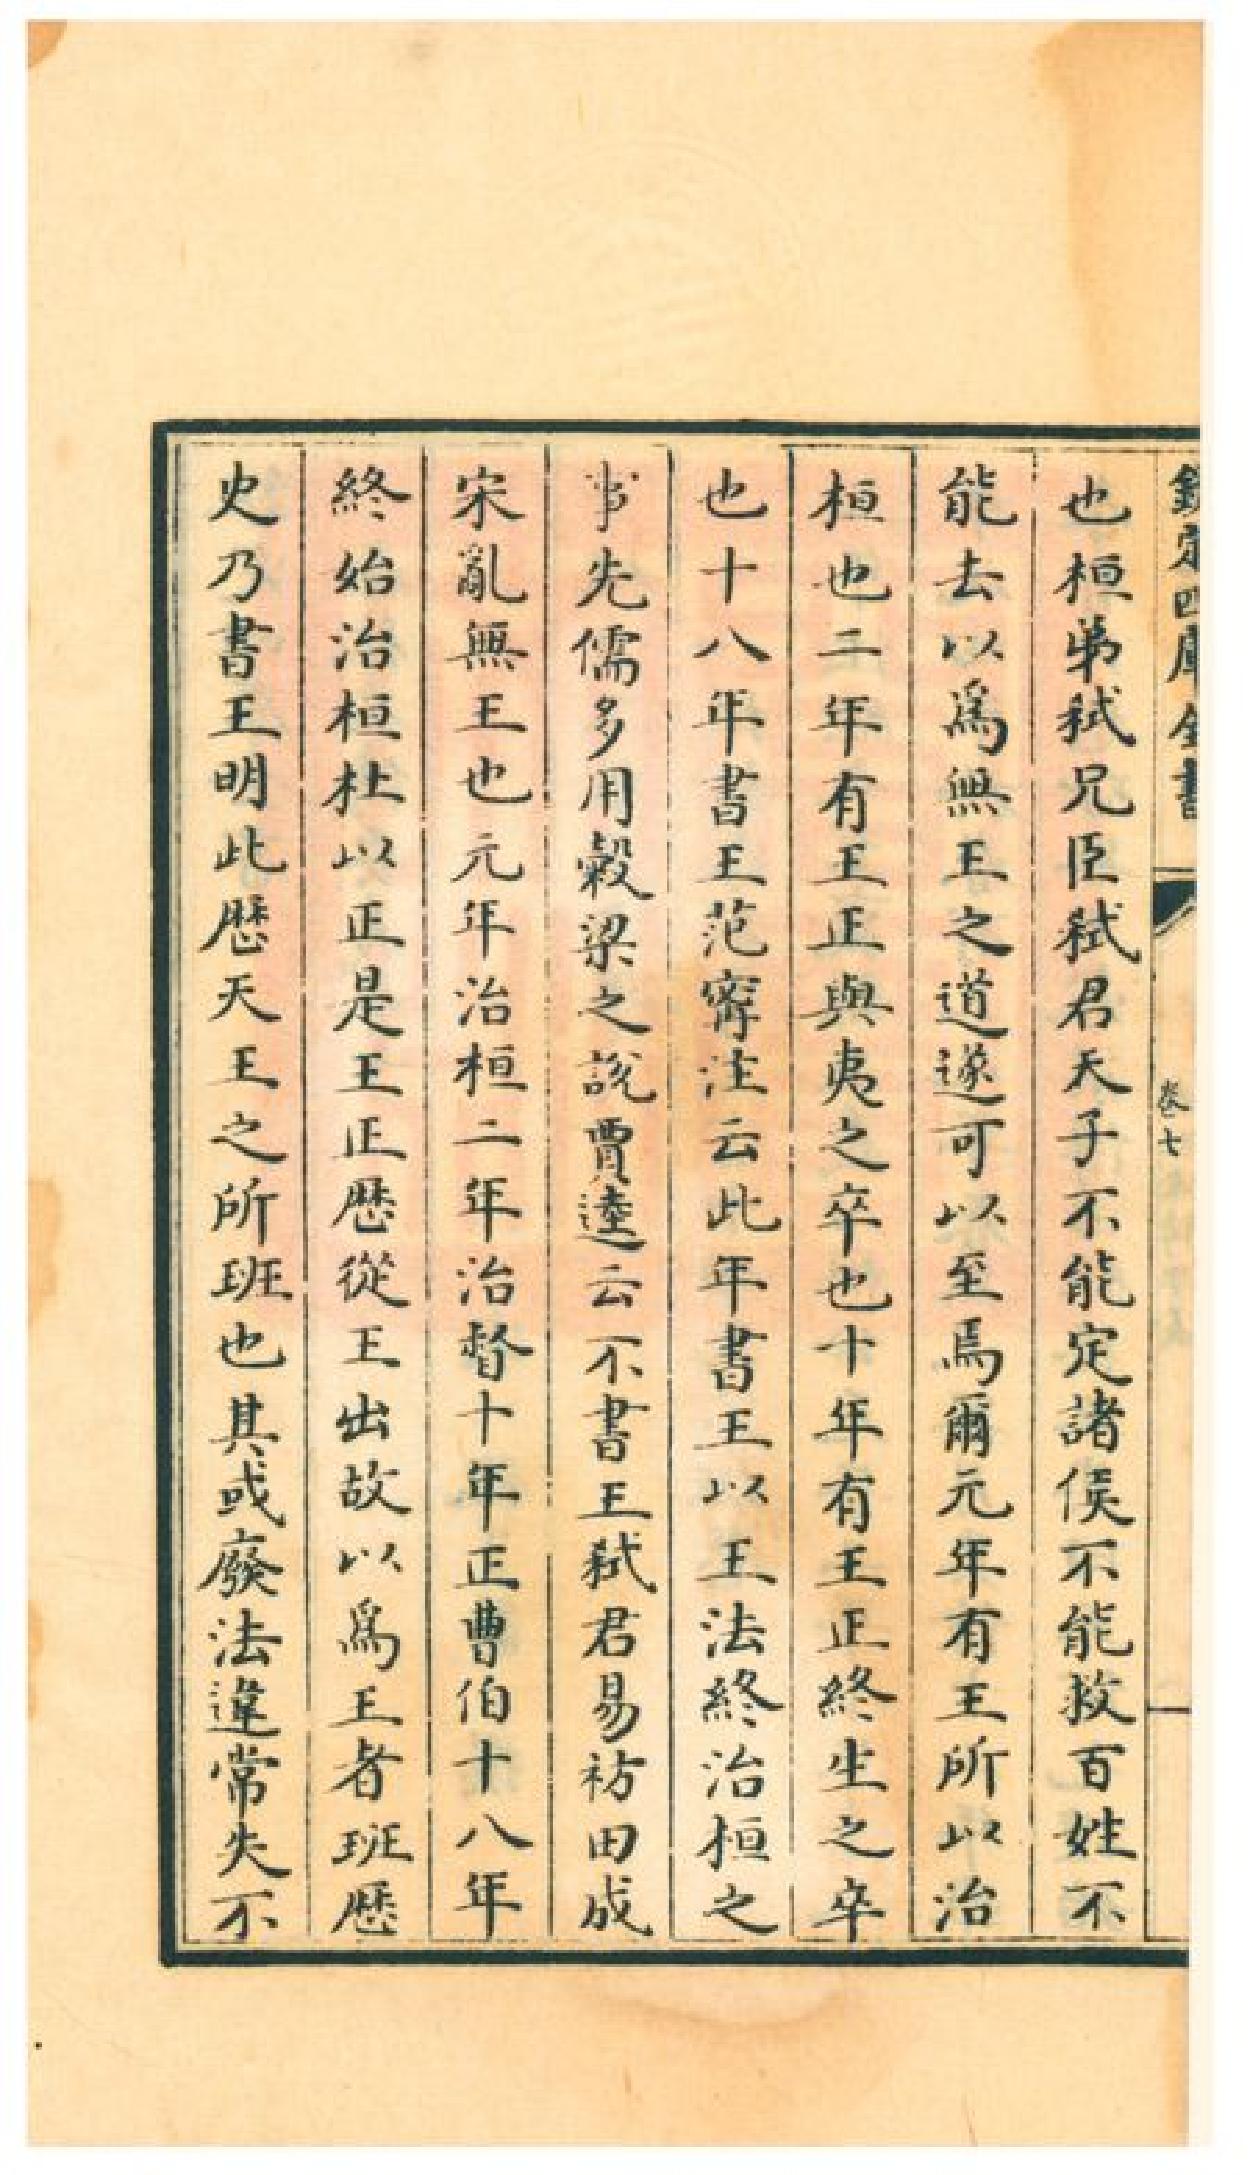 欽定四庫全書
卷七
也桓弟弒兄臣弒君天子不能定諸侯不能救百姓不
能去以為無王之道遂可以至焉爾元年有王所以治
桓也二年有王正與夷之卒也十年有王正終生之卒
也十八年書王范寗注云此年書王以王法終治桓之
事先儒多用穀梁之說賈逵云不書王弒君易祊田成
宋亂無王也元年治桓二年治督十年正曹伯十八年
終始治桓杜以正是王正歴從王出故以為王者班歴
史乃書王明此歴天王之所班也其或廢法違常失不